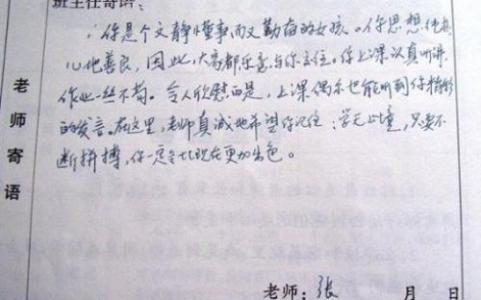 班主任寄语:
你是个文静懂事而又勤奋的女孩。你思想健康
心地善良,因此,大家都乐意与你交往。你上课认真听讲
作业一丝不苟。令人欣慰的是,上课偶尔也能听到你精彩
的发言。在这里,老师真诚地希望你记住:学无止境,只要不
断拼搏,你一定会比现在更加出色。
老师寄语
老师:张 月 日